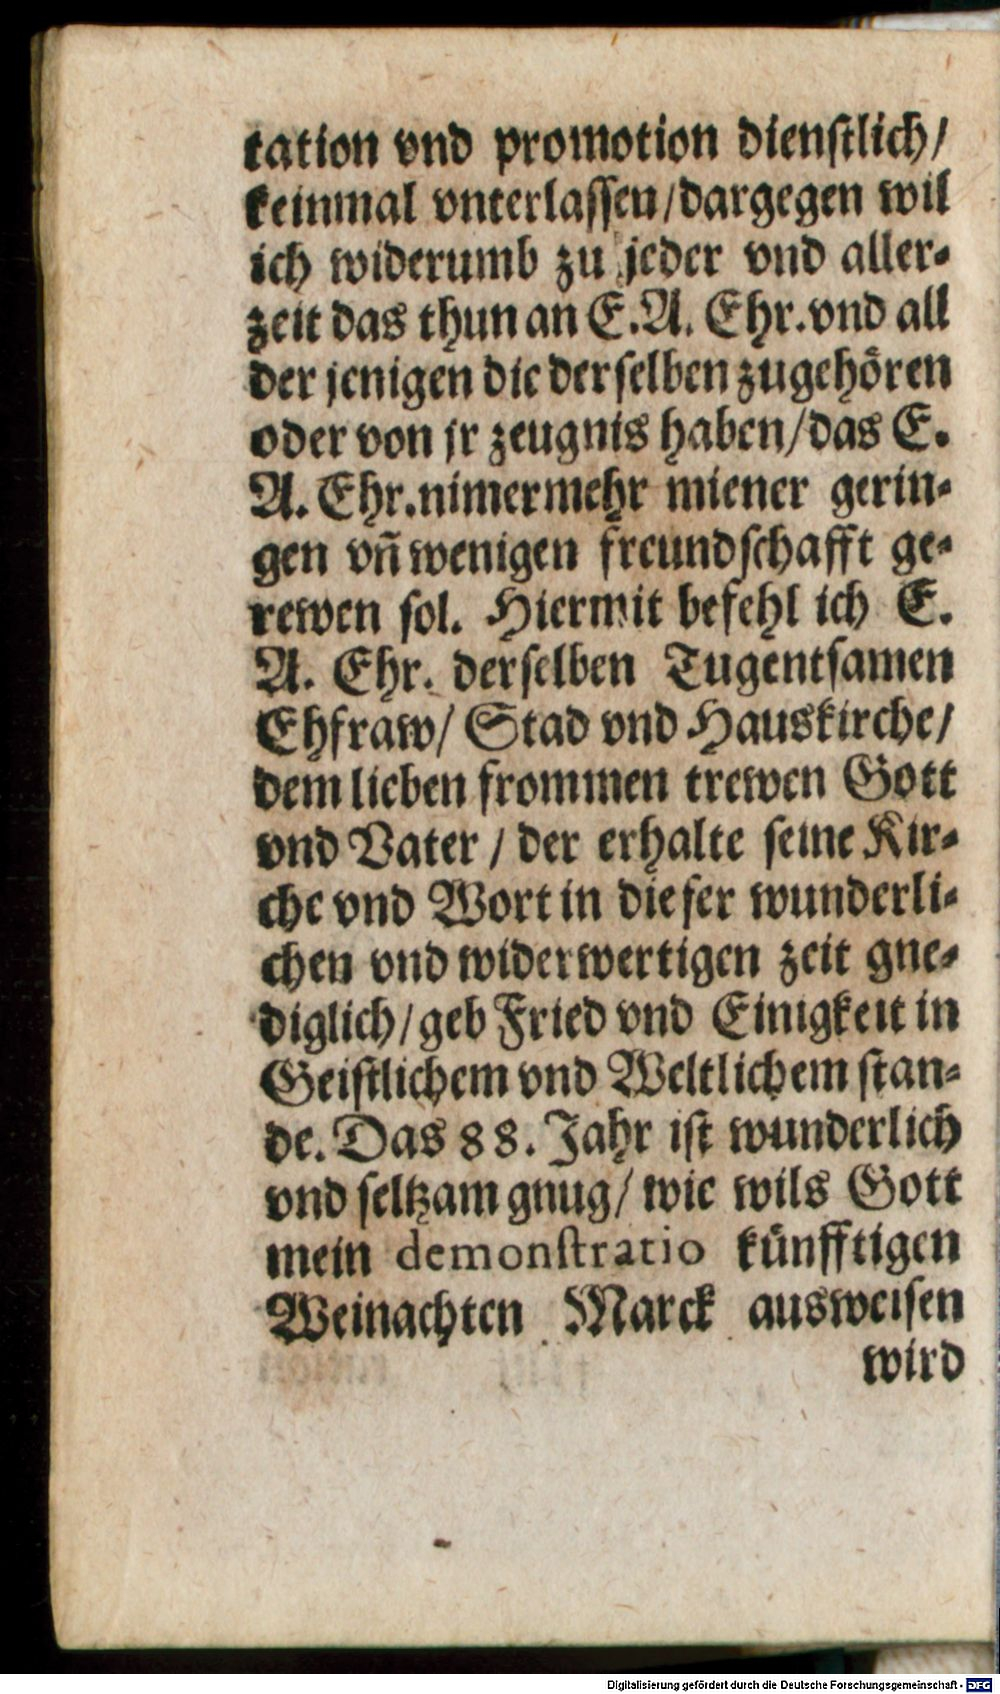 tation vnd promotion dienstlich/
keinmal vnterlassen/dargegen wil
ich widerumb zu jeder vnd aller-
zeit das thun an E.A. Ehr.vnd all
der jenigen die derselben zugehören
oder von jr zeugnis haben/das E.
A. Ehr.nimermehr miener gerin-
gen vñ wenigen freundschafft ge-
rewen sol. Hiermit befehl ich E.
A. Ehr. derselben Tugentsamen
Ehfraw/ Stad vnd Hauskirche/
dem lieben frommen trewen Gott
vnd Vater / der erhalte seine Kir-
che vnd Wort in dieser wunderli-
chen vnd widerwertigen zeit gne-
diglich/geb Fried vnd Einigkeit in
Geistlichem vnd Weltlichem stan-
de. Das 88. Jahr ist wunderlich
vnd seltzam gnug/ wie wils Gott
mein demonstratio künfftigen
Weinachten Marck ausweisen
wird
Digitalisierung gefördert durch die Deutsche Forschungsgemeinschaft - DFG